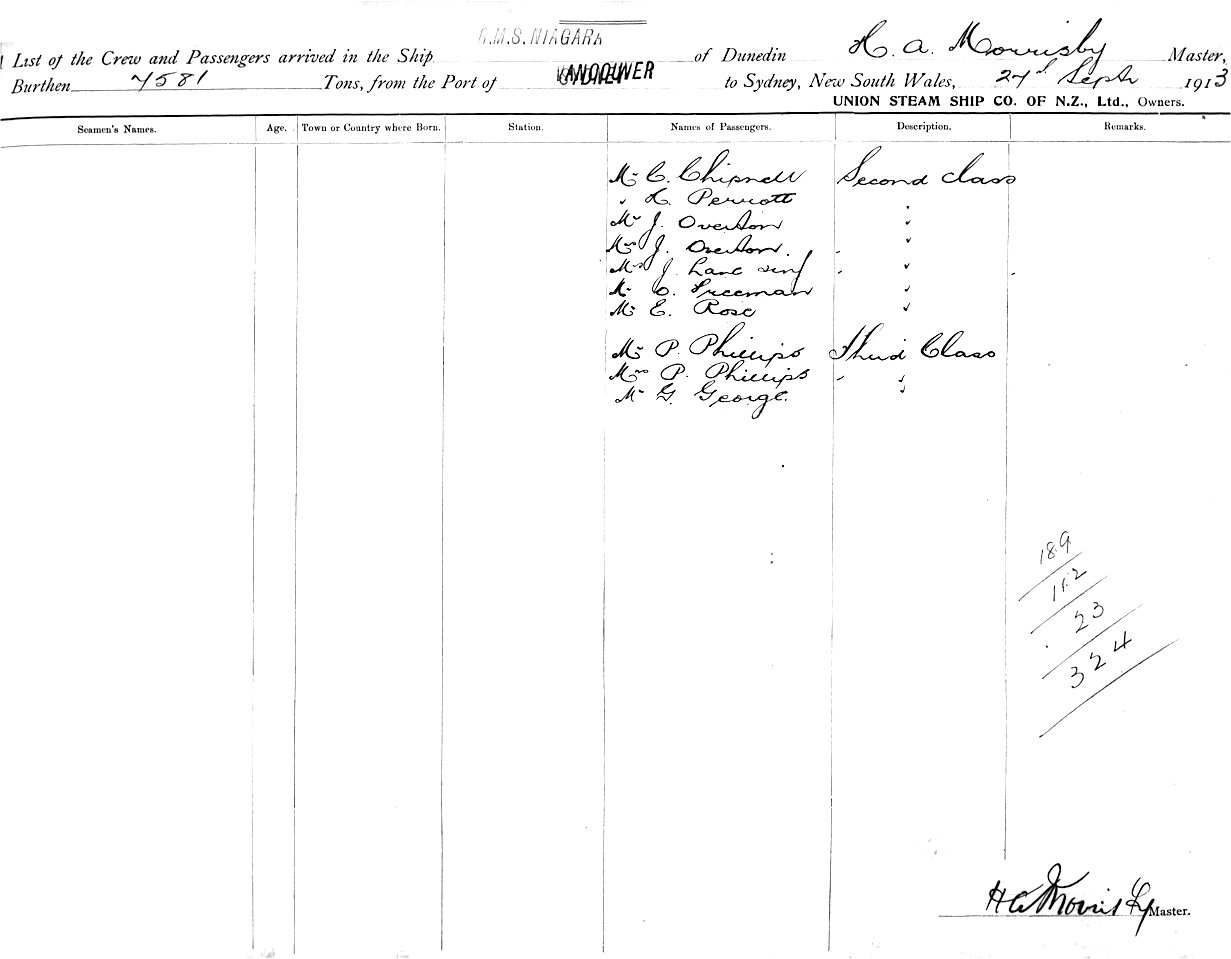 R.M.S. NIAGARA
List of the Crew and Passengers arrived in the Ship of Dunedin H. A. Morrisby Master,
Burthen 7581 Tons, from the Port of VANCOUVER to Sydney, New South Wales, 27th Septr 1913
UNION STEAM SHIP CO. OF N.Z., Ltd., Owners.
Seamen's Names. Age. Town or Country where Born. Station. Names of Passengers. Description. Remarks.
Mr C. Chipnell Second Class
" H. Perriott
Mr J. Overton
Mrs J. Overton.
J. Lane
Mr O. Freeman
Mr E. Rose
Mr P. Phillips Third Class
Mrs P. Phillips
Mr G. George.
189
112
23
324
H A Morrisby Master.